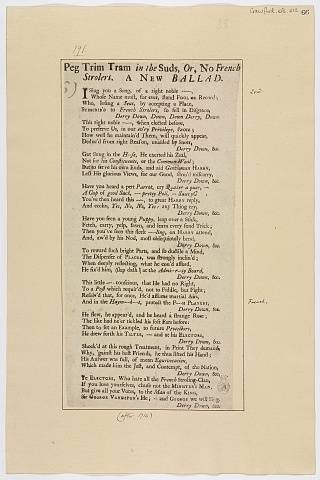 Crawford. EB. 66
191.
Peg Trim Tram in the Suds, Or, No French
Strolers. A NEW BALLAD.
I Sing you a Song, of a right noble —,
Whose Name must, for ever, stand on Record;
Who, being a by accepting a Place,
to French Strolers, so fell in Disgrace,
Derry Down, Down, Down Derry, Down.
This right noble —, when chosen before,
To preserve us, in our Liberty,
How well he maintain'd Them, will quickly appear,
from right Reason, by
Derry Down, &c.
Got Snug in the H—se, He exerted his Zeal,
Not for his Constituents, or the
But to serve his own Ends, and
Lest His glorious Views, for our Good, shou'd miscarry,
Derry Down, &c.
Have you heard a pert Parrot, cry
A Cup of good Sack, — pretty Poll, —
You've then heard this —, to great HARRY reply,
And eccho, Yes, No, No, Yes, any Thing cry,
Derry Down, &c.
Have you seen a young Puppy, leap over a Stick,
Fetch, carry, yelp, fawn, and learn every fond Trick;
Then you've seen this sleek —ling, on HARRY attend,
And, aw'd by his Nod, most obsequiously bend,
Derry Down, &c.
To reward such bright Parts, and so ductile a Mind,
The Dispenser of PLACES, was strongly inclin'd;
When deeply reflecting, what he cou'd afford,
He fix'd him, (slap dash) at the Board,
Derry Down, &c.
This little — conscious, that He had no Right,
To a Post which requir'd, not to Fiddle, but Fight;
Resolv'd that, for once, He'd assume martial Airs,
And in the protect the F— PLAYERS,
Derry Down, &c.
He flew, he appear'd, and he heard a strange Roar;
The like had ne'er tickled his soft Ears before:
Then to set an Example, to future
He drew forth his — and at his ELECTORS,
Derry Down, &c.
Shock'd at this rough Treatment, in Print They demand,
Why, 'gainst his best Friends, he thus lifted his Hand;
His Answer was full, of mean Equivocation,
Which made him the Jest, and Contempt, of the Nation,
Derry Down, &c.
Ye ELECTORS, Who hate all the French Strolling-Clan,
If you love yourselves, chuse not the MINISTER'S MAN,
But give all your Votes, to the Man of the KING,
Sir GEORGE VANDEPUT'S He; — and GEORGE we will
Derry Down, &c.